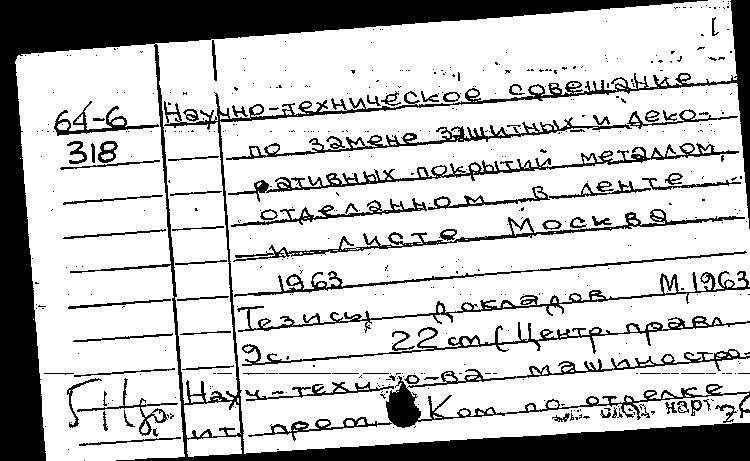 64-6 Научно-техническое совещание
318 по замене защитных и деко-
ративных покрытий металлом,
отделанном в ленте
и листе. Москва
1963
Тезисы докладов. М., 1963
9с. 22 см. (Центр. правл.
Науч.-техн. о-ва машиностро-
ит. пром. Ком. по отделке
см. след. карт.